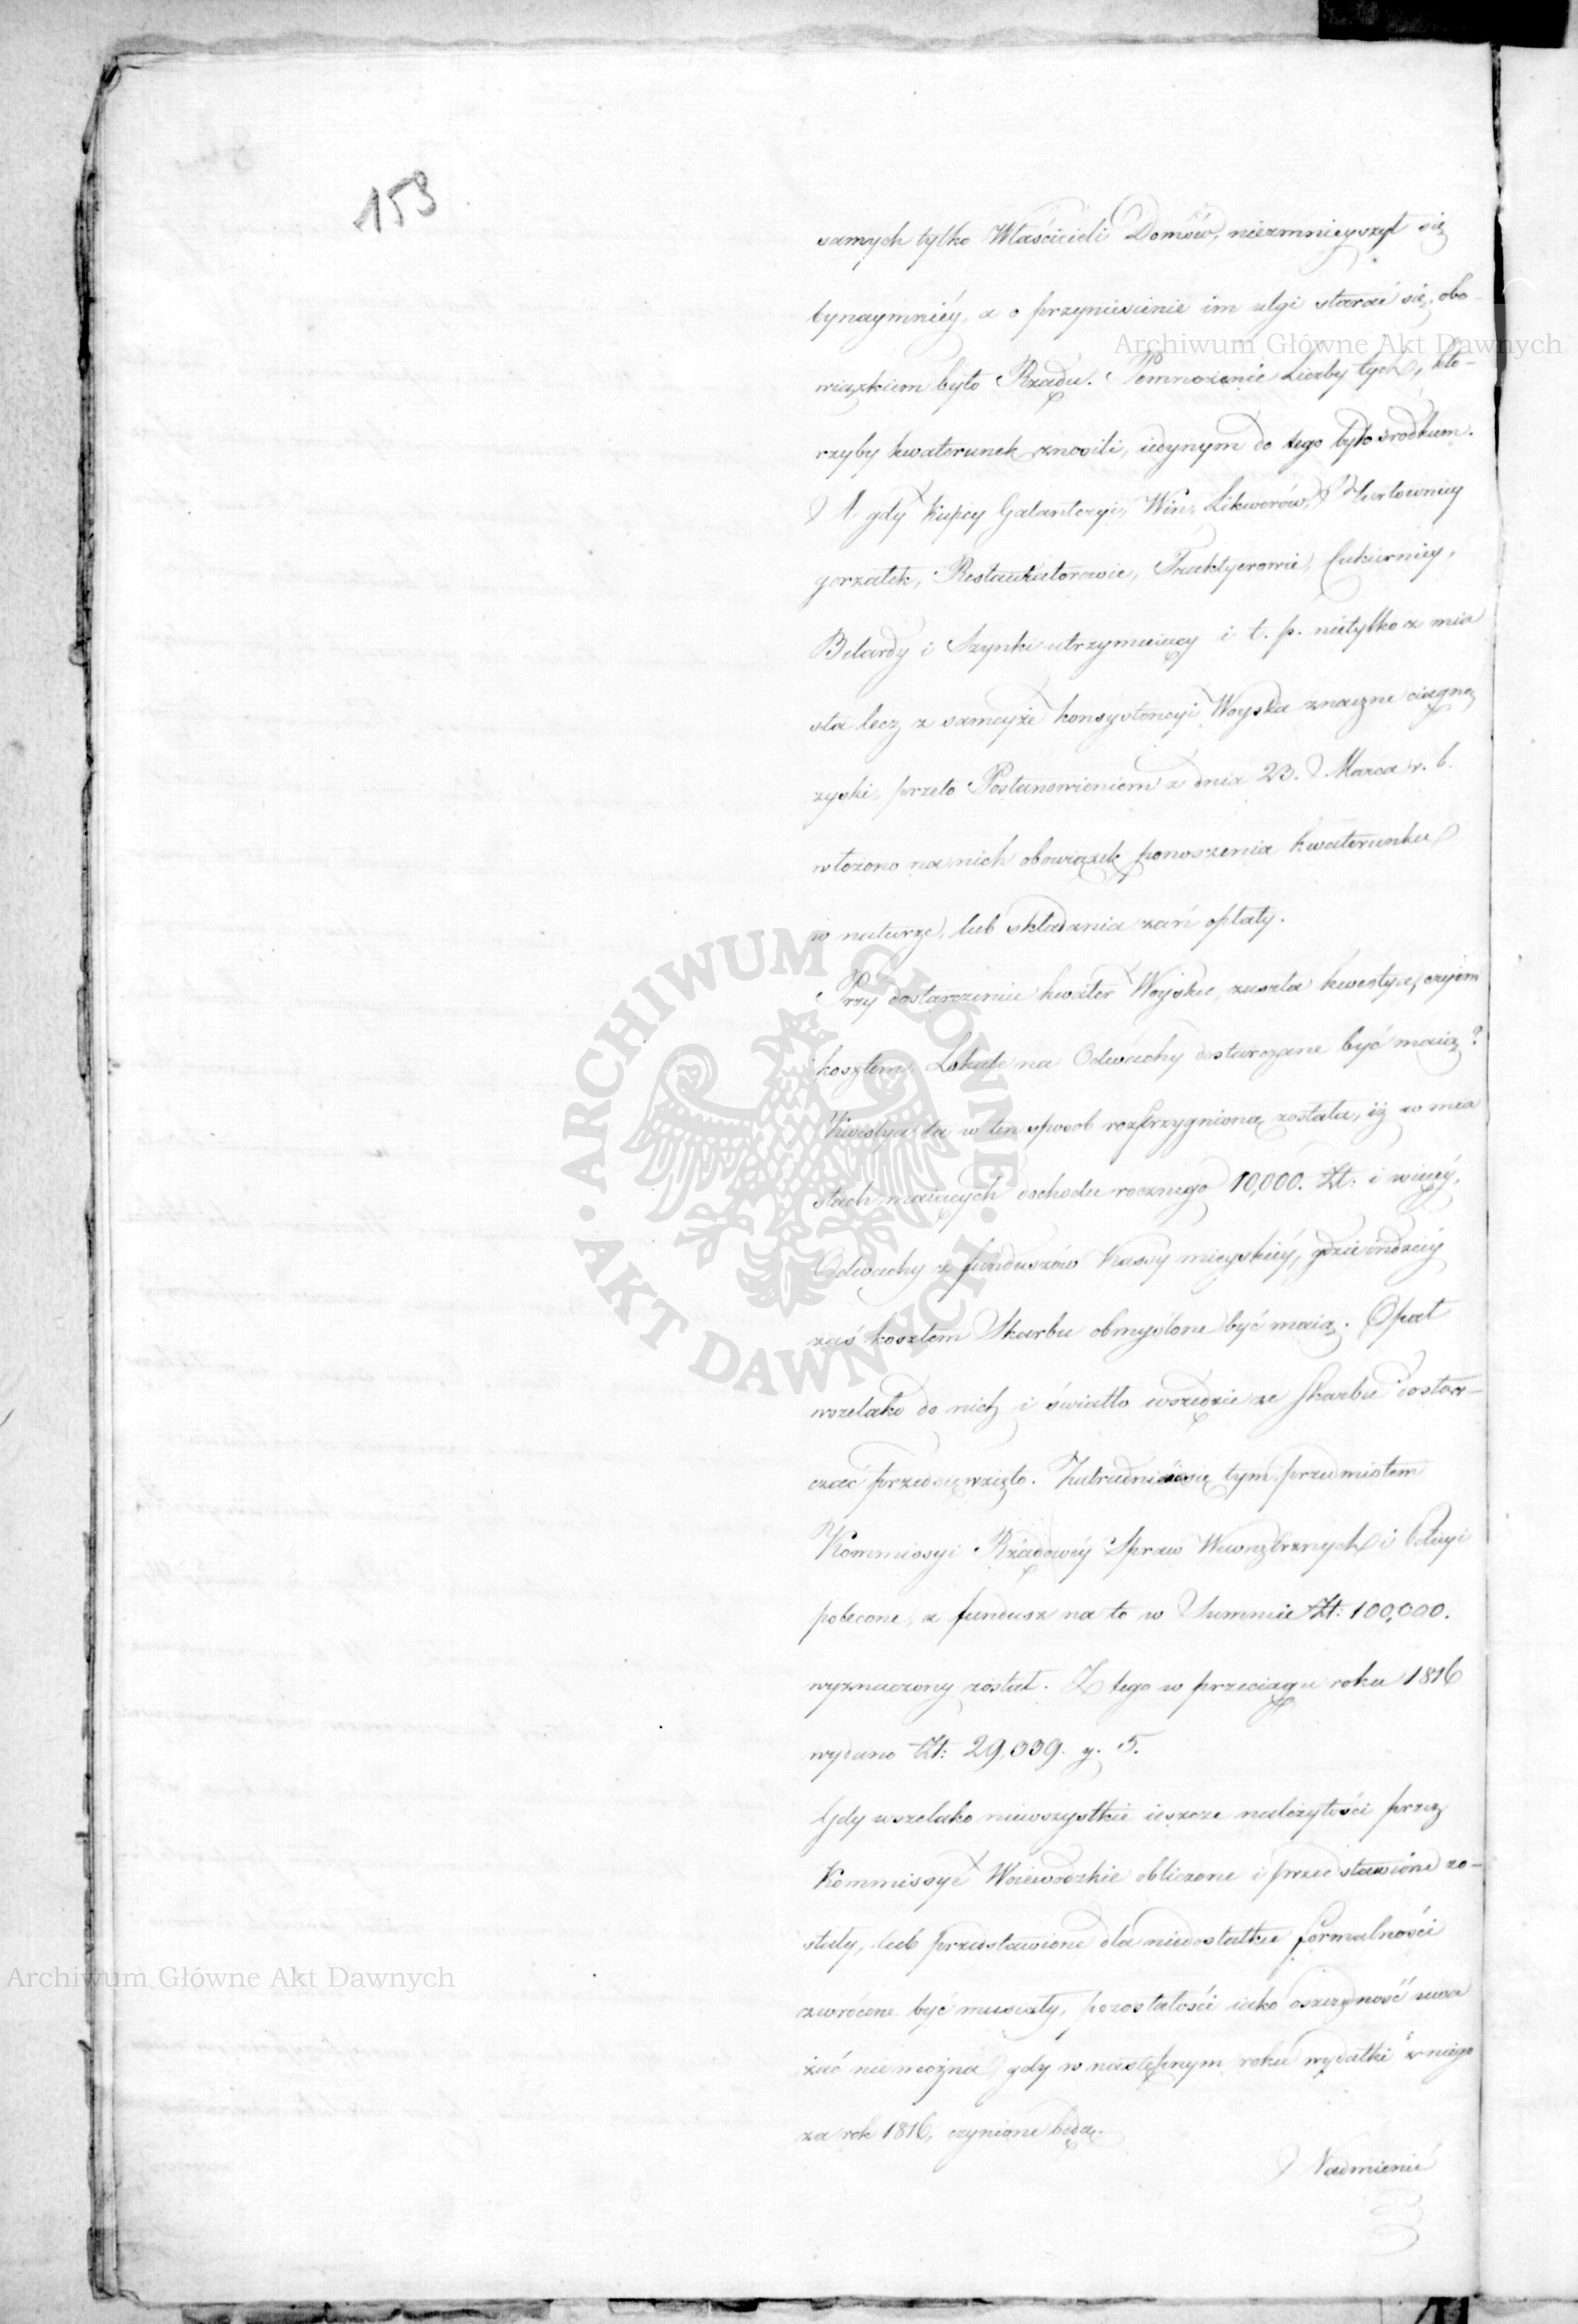 153
samych tylko Właścicieli Domów, niezmnieyszył się
bynaymniéy, a o przyniesienie im ulgi starać się, obo-
wiązkiem było Rządu. Pomnożenie Liczby tych, któ-
rzyby kwaterunek znosili, iedynym do tego było środkiem.
A gdy Kupcy Galanteryi, Win, Likworów, Hurtownicy
gorzałek, Restauratorowie, Traktyerowie, Cukiernicy,
Bilardy i Szynki utrzymuiący i t. p. nietylko z mia
sta lecz z samejże konsystencyi Woyska znaczne ciągną
zyski, przeto Postanowieniem z dnia 23. Marca r. b.
włożono na nich obowiązek ponoszenia kwaterunku
w naturze, lub składania zań opłaty.
Przy dostarczeniu kwater Woysku, zaszła kwestya, czyiem
kosztem Lokale na Odwachy dostarczane być maią?
Kwestya ta w ten sposob rozstrzygnioną została, iż w mia
stach maiących dochodu rocznego 10,000. Zł: i więcéy,
Odwachy z funduszów Kassy mieyskiéy, gdzieindziéy
zaś kosztem Skarbu obmyślone być maią. Opał
wszelako do nich i światło wszędzie ze Skarbu dostar-
czać przedsięwzięto. Zatrudnienie się tym przedmiotem
Kommissyi Rządowéy Spraw Wewnętrznych i Policyi
polecone, a fundusz na to w Summie Zł: 100,000.
wyznaczony został. Z tego w przeciągu roku 1816
wydano Zł: 29,039. g. 5.
Gdy wszelako niewszystkie ieszcze należytości przez
Kommissye Woiewodzkie obliczone i przedstawione zo-
stały, lub przedstawione dla niedostatku formalności
zwrócone być musiały, pozostałości iako oszczędność uwa
żać nie można, gdy w następnym roku wydatki z niego
za rok 1816, czynione będą.
Nadmienić
Archiwum Główne Akt Dawnych
ARCHIWUM GŁÓWNE · AKT DAWNYCH ·
Archiwum Główne Akt Dawnych